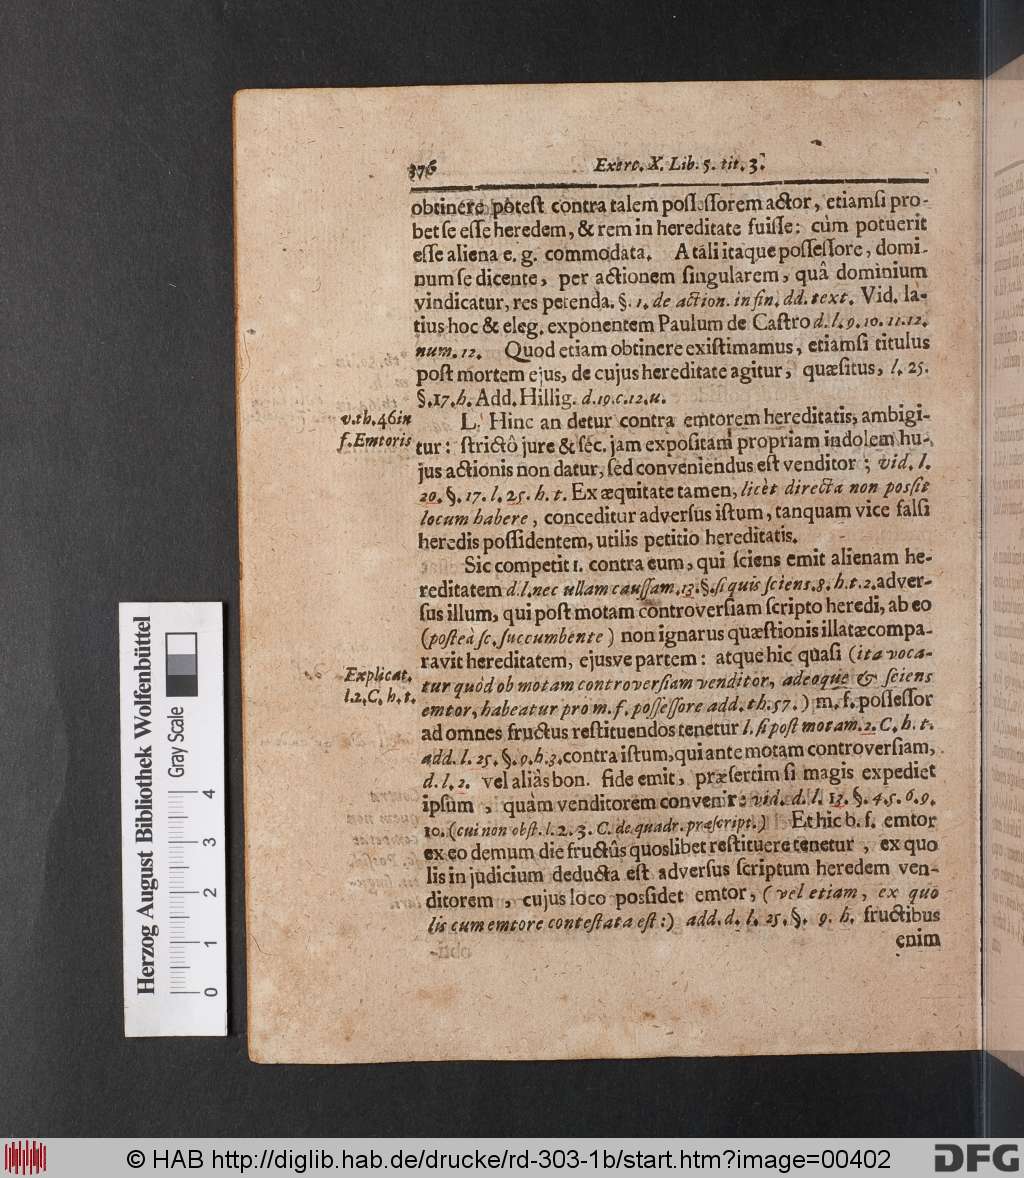 376
Exerc. X. Lib. 5. tit. 3.
obtinere potest contra talem possessorem actor, etiamsi pro-
bet se esse heredem, & rem in hereditate fuisse: cùm potuerit
esse aliena e. g. commodata. A tali itaque possessore, domi-
num se dicente, per actionem singularem, quâ dominium
vindicatur, res petenda. §. 1. de action. in fin. dd. text. Vid. la-
tius hoc & eleg. exponentem Paulum de Castro d. l. 9. 10. 11. 12.
num. 12. Quod etiam obtinere existimamus, etiamsi titulus
post mortem ejus, de cujus hereditate agitur, quæsitus, l. 25.
§. 17. h. Add. Hillig. d. 19. c. 12. u.
v. th. 46 in
f. Emtoris
L. Hinc an detur contra emtorem hereditatis, ambigi-
tur: strictô jure & séc. jam expositam propriam indolem hu-
jus actionis non datur, sed conveniendus est venditor; vid. l.
20. §. 17. l. 25. h. t. Ex æquitate tamen, licèt directa non possit
locum habere, conceditur adversus istum, tanquam vice falsi
heredis possidentem, utilis petitio hereditatis.
Sic competit 1. contra eum, qui sciens emit alienam he-
reditatem d. l. nec ullam caussam. 13. §. si quis sciens. 8. h. t. 2. adver-
sus illum, qui post motam controversiam scripto heredi, ab eo
(posteà sc. succumbente) non ignarus quæstionis illatæ compa-
ravit hereditatem, ejusve partem: atque hic quasi (ita voca-
Explicat.
l. 2. C. h. t.
tur quòd ob motam controversiam venditor, adeoque & sciens
emtor, habeatur pro m. f. possessore add. th. 57.) m. f. possessor
ad omnes fructus restituendos tenetur l. si post motam. 2. C. h. t.
add. l. 25. §. 9. h. 3. contra istum, qui ante motam controversiam,
d. l. 2. vel aliàs bon. fide emit, præsertim si magis expediet
ipsum, quàm venditorem convenire: vid. d. l. 13. §. 4. 5. 6. 9.
10. (cui non obst. l. 2. 3. C. de quadr. præscript.) Et hic b. f. emtor
ex eo demum die fructûs quoslibet restituere tenetur, ex quo
lis in judicium deducta est adversus scriptum heredem ven-
ditorem, cujus loco possidet emtor, (vel etiam, ex quo
lis cum emtore contestata est:) add. d. l. 25. §. 9. h. fructibus
enim
Herzog August Bibliothek Wolfenbüttel
Gray Scale
0 1 2 3 4
© HAB http://diglib.hab.de/drucke/rd-303-1b/start.htm?image=00402
DFG